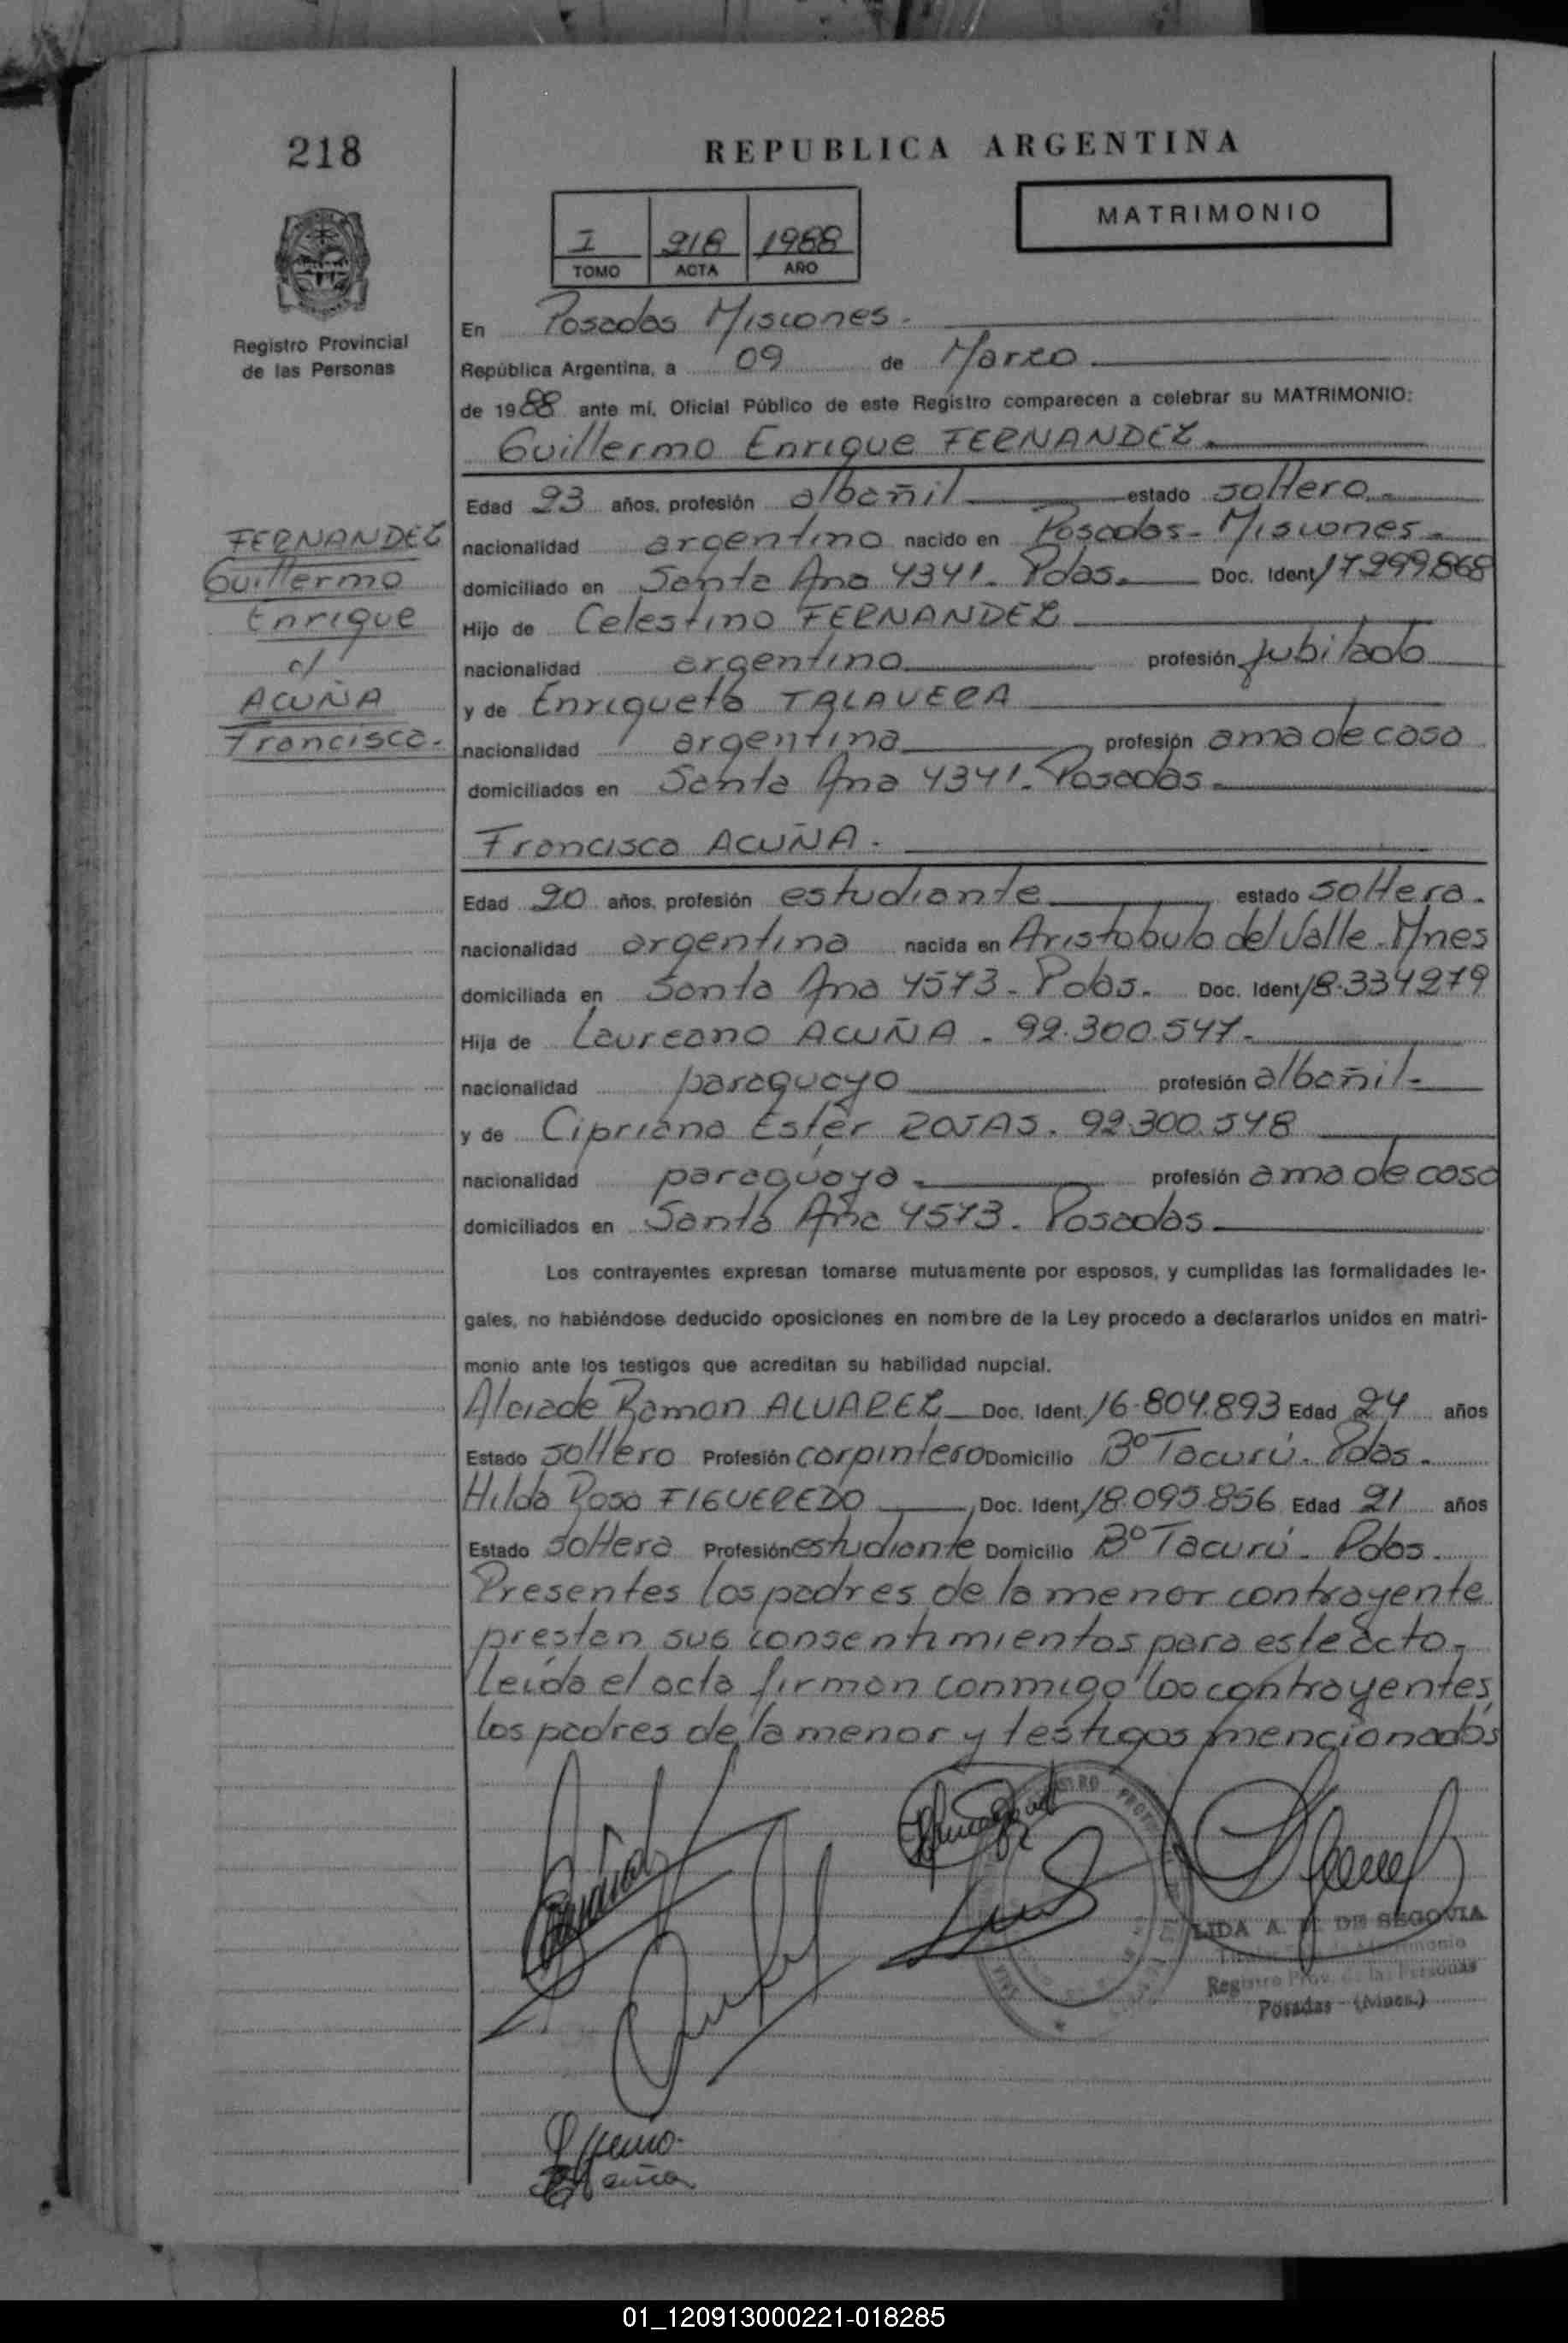 218
REPUBLICA ARGENTINA
MATRIMONIO
I 218 1988
TOMO ACTA AÑO
Registro Provincial
de las Personas
En Posadas Misiones.
República Argentina, a 09 de Marzo
de 1988 ante mí, Oficial Público de este Registro comparecen a celebrar su MATRIMONIO:
Guillermo Enrique FERNANDEZ.
Edad 23 años, profesión albañil estado soltero.
FERNANDEZ
Guillermo
Enrique
c/
ACUÑA
Francisca.
nacionalidad argentino nacido en Posadas-Misiones.
domiciliado en Santa Ana 4341. Pdas. Doc. Ident. 17.999.868
Hijo de Celestino FERNANDEZ
nacionalidad argentino profesión jubilado
y de Enriqueta TALAVERA
nacionalidad argentina profesión ama de casa
domiciliados en Santa Ana 4341. Posadas.
Francisca ACUÑA.
Edad 20 años, profesión estudiante estado soltera.
nacionalidad argentina nacida en Aristobulo del Valle. Mnes
domiciliada en Santa Ana 4573. Pdas. Doc. Ident. 18.334279
Hija de Laureano ACUÑA. 92.300.547.
nacionalidad paraguayo profesión albañil.
y de Cipriana Ester ROJAS. 92.300.548
nacionalidad paraguaya. profesión ama de casa
domiciliados en Santa Ana 4573. Posadas.
Los contrayentes expresan tomarse mutuamente por esposos, y cumplidas las formalidades le-
gales, no habiéndose deducido oposiciones en nombre de la Ley procedo a declararlos unidos en matri-
monio ante los testigos que acreditan su habilidad nupcial.
Alciade Ramon ALVAREZ Doc. Ident. 16.804.893 Edad 24 años
Estado soltero Profesión carpintero Domicilio Bº Tacurú. Pdas.
Hilda Rosa FIGUEREDO Doc. Ident. 18.095.856 Edad 21 años
Estado soltera Profesión estudiante Domicilio Bº Tacurú. Pdas.
Presentes los padres de la menor contrayente
prestan sus consentimientos para este acto.
Leída el acta firman conmigo los contrayentes,
los padres de la menor y testigos mencionados
LIDA A. DE SEGOVIA
Registro Prov. de las Personas
Posadas - (Mnes.)
01_120913000221-018285